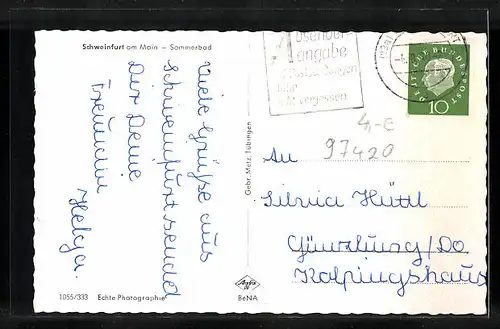 Schweinfurt am Main – Sommerbad
Viele Grüße aus
Schweinfurt sendet
Dir Deine
Freundin
Helga.
1055/333 Echte Photographie
Gebr. Metz, Tübingen
Agfa
BeNA
Absender-
angabe
nicht vergessen
DEUTSCHE BUNDESPOST
10
4,-€
97420
An
Silvia Hüttl
Günzburg/Do
Kolpingshaus